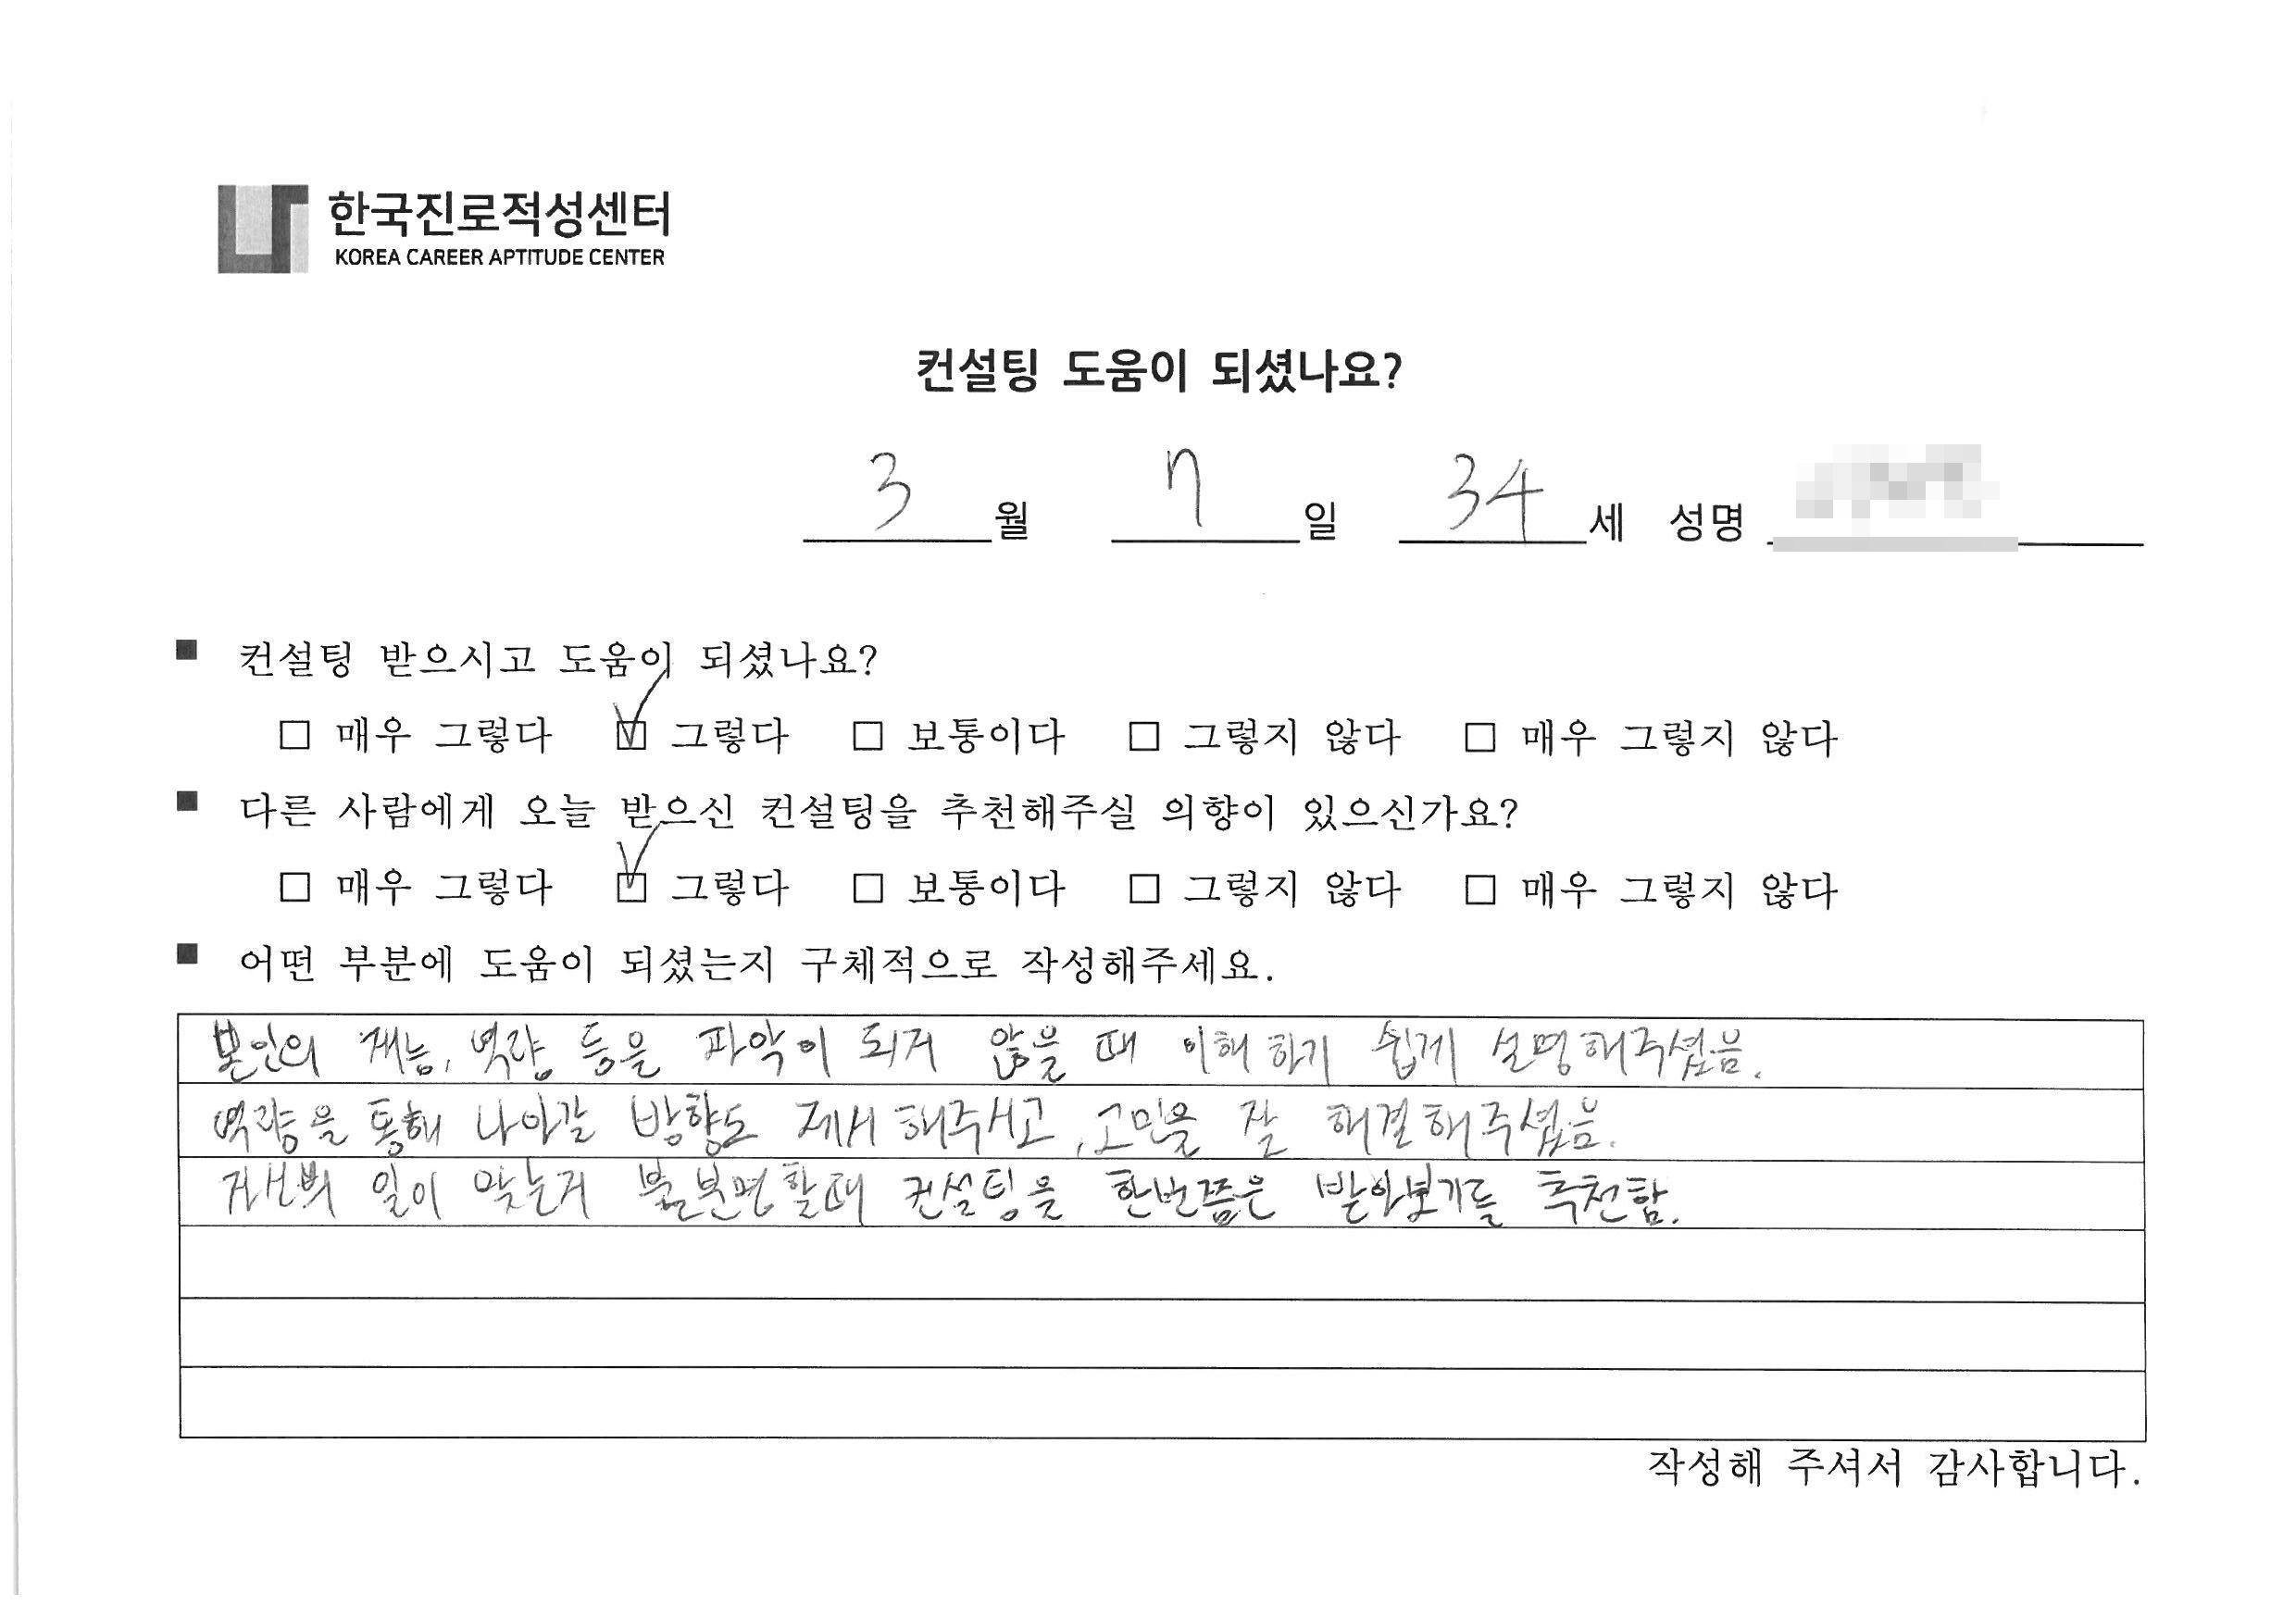 한국진로적성센터
KOREA CAREER APTITUDE CENTER
컨설팅 도움이 되셨나요?
3 월 7 일 34 세 성명
■ 컨설팅 받으시고 도움이 되셨나요?
□ 매우 그렇다 ☑ 그렇다 □ 보통이다 □ 그렇지 않다 □ 매우 그렇지 않다
■ 다른 사람에게 오늘 받으신 컨설팅을 추천해주실 의향이 있으신가요?
□ 매우 그렇다 ☑ 그렇다 □ 보통이다 □ 그렇지 않다 □ 매우 그렇지 않다
■ 어떤 부분에 도움이 되셨는지 구체적으로 작성해주세요.
본인의 재능, 역량 등을 파악이 되지 않을 때 이해하기 쉽게 설명해주셨음.
역량을 통해 나아갈 방향도 제시해주시고, 고민을 잘 해결해주셨음.
일이 맞는지 불분명할때 컨설팅을 한번쯤은 받아보기를 추천함.
작성해 주셔서 감사합니다.